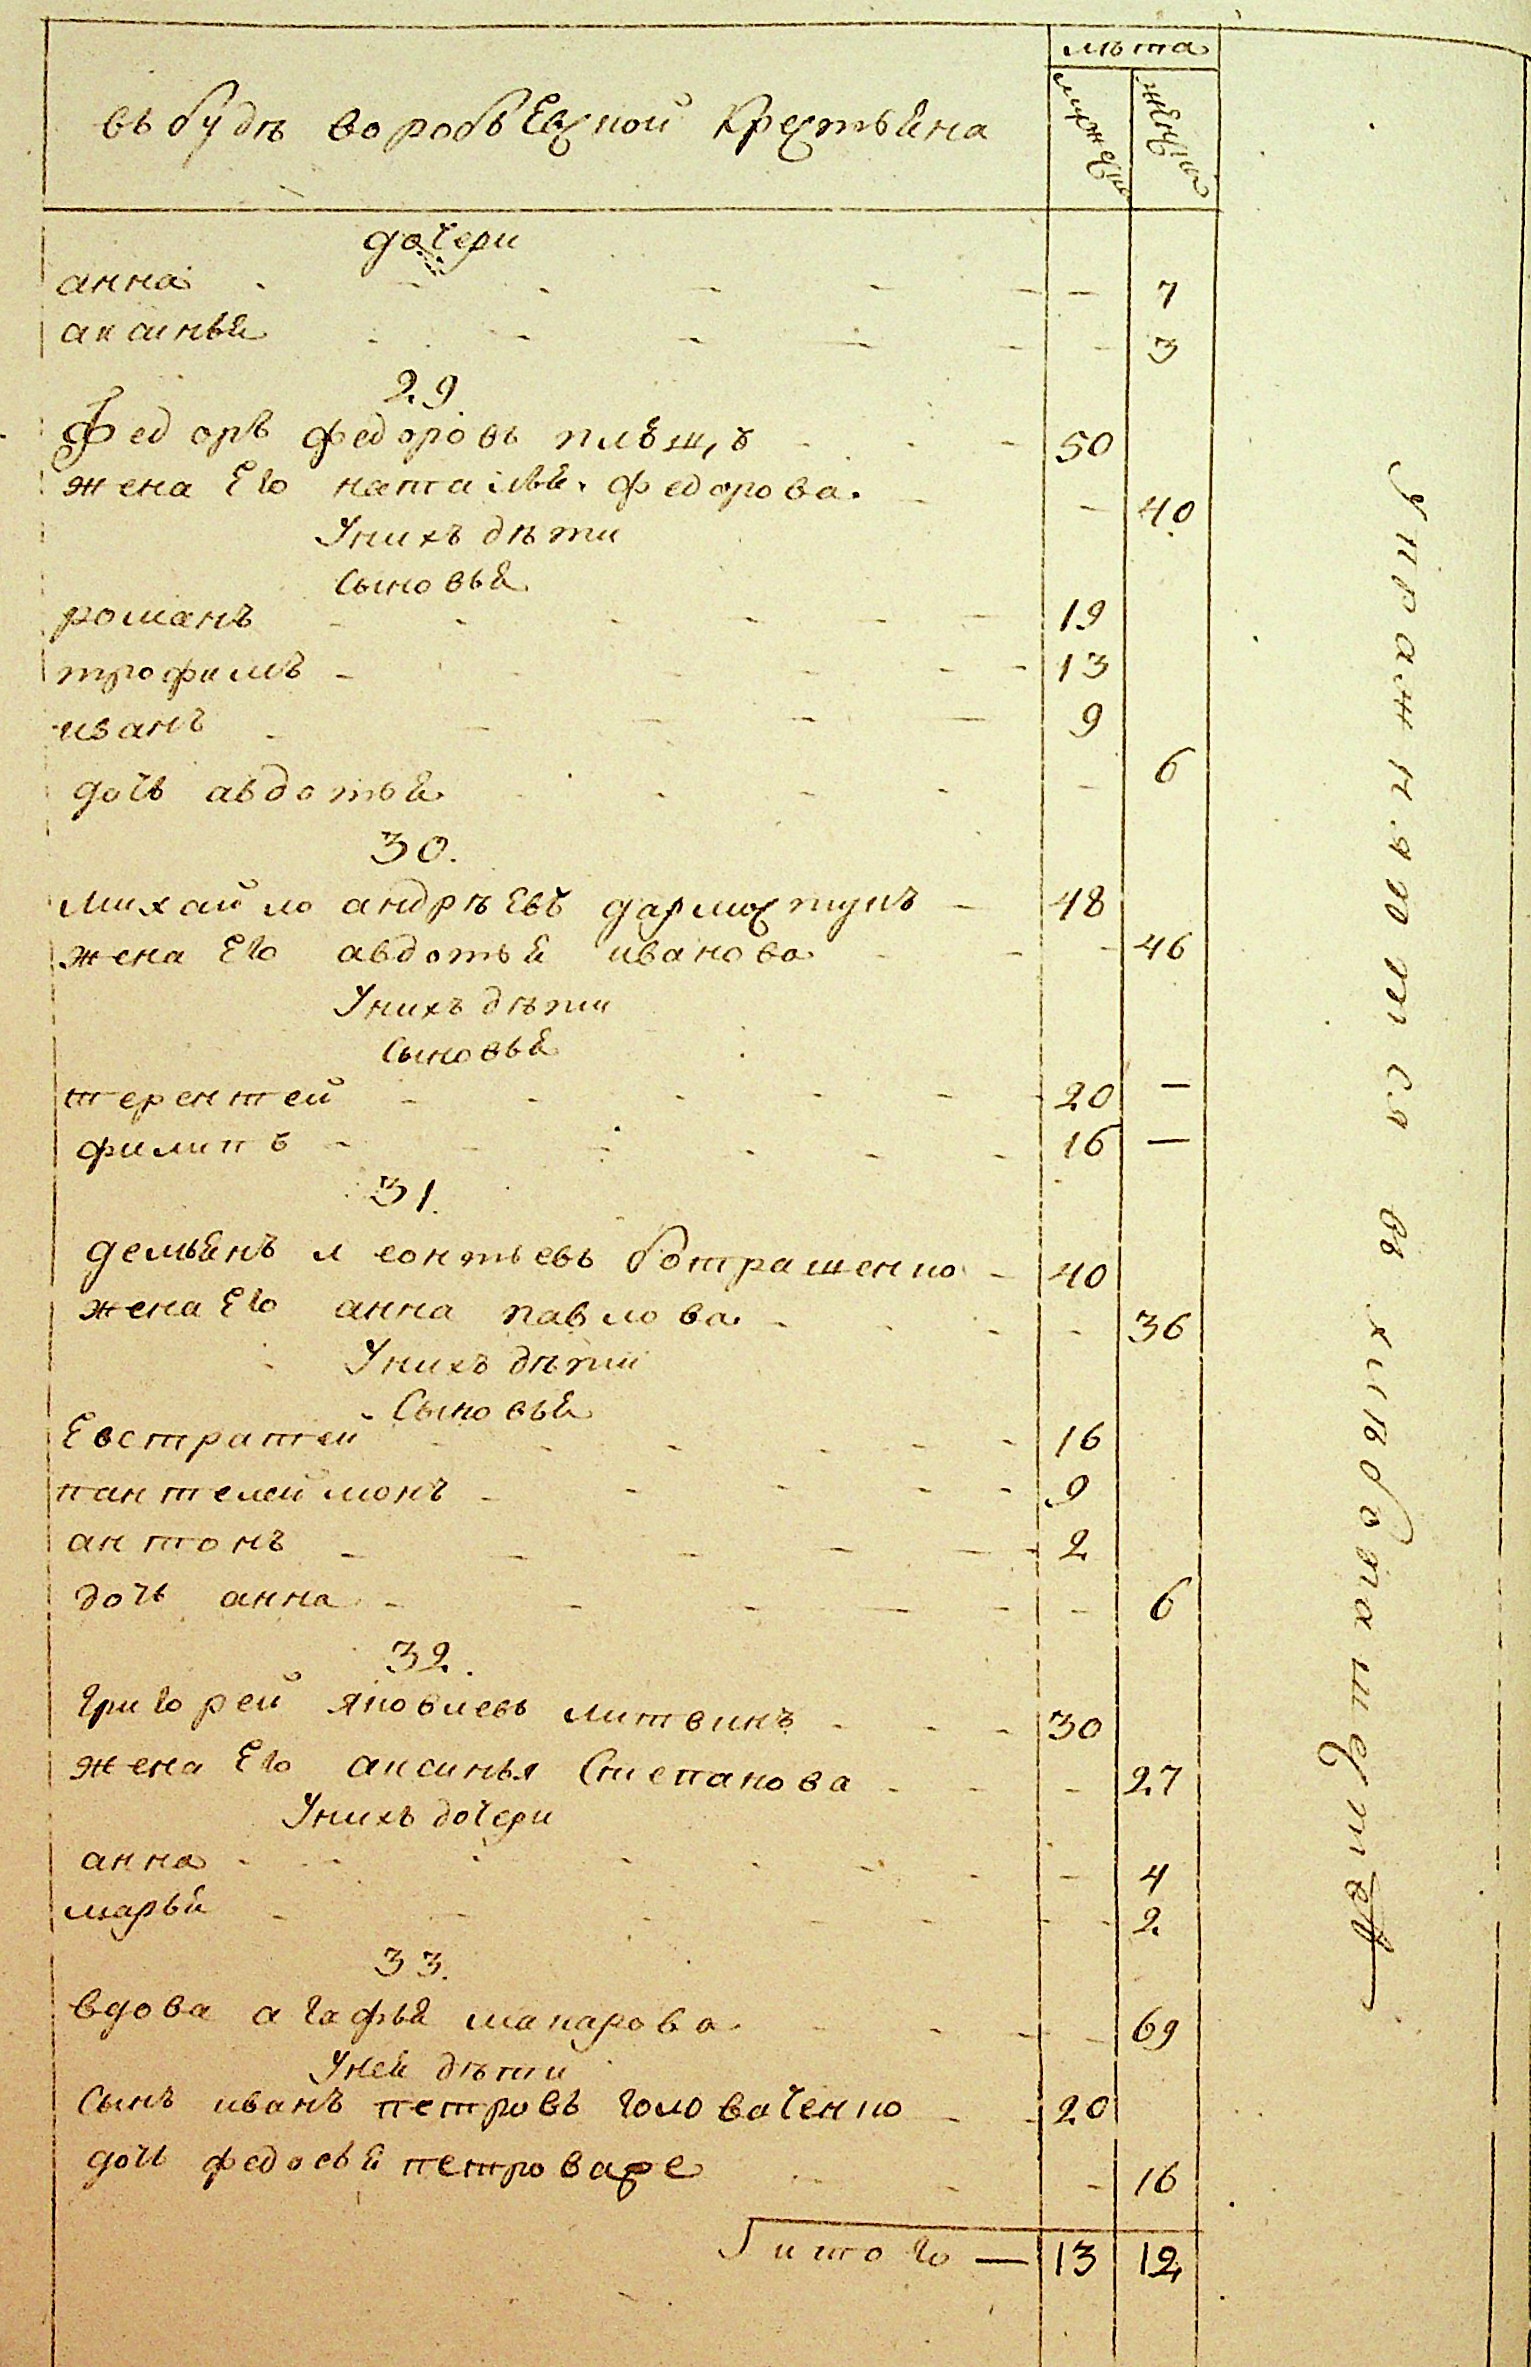 лѣта
въ будѣ воробъевской крестьяна
мужеска
женской
дочери
анна - - - - - - 7
аксинья - - - - - - 3
29.
Федоръ федоровъ плѣщъ - - - 50
жена его наталья федорова - - 40
Унихъ дѣти
Сыновья
романъ - - - - - - 19
трофимъ - - - - - - 13
иванъ - - - - - 9
дочь авдотья - - - - - 6
30.
михайло андрѣевъ дармостукъ - 48
жена его авдотья иванова - - - 46
Унихъ дѣти
Сыновья
терентей - - - - - 20 —
филипъ - - - - - - 16 —
31.
демьянъ леонтьевъ ботрашенко - 40
жена его анна павлова - - - - 36
Унихъ дѣти
Сыновья
Евстратей - - - - - - 16
пантелеймонъ - - - - - 9
антонъ - - - - - 2
дочь анна - - - - - - 6
32.
григорей яковлевъ литвинъ - - - 30
жена его аксинья Степанова - - - 27
Унихъ дочери
анна - - - - - - - - 4
марья - - - - - - - - 2
33.
вдова агафья макарова - - - - 69
Уней дѣти
Сынъ иванъ петровъ головаченко - - 20
дочь федосья петрова же - - - 16
итого — 13 12
Упражняются въ хлебопашестве